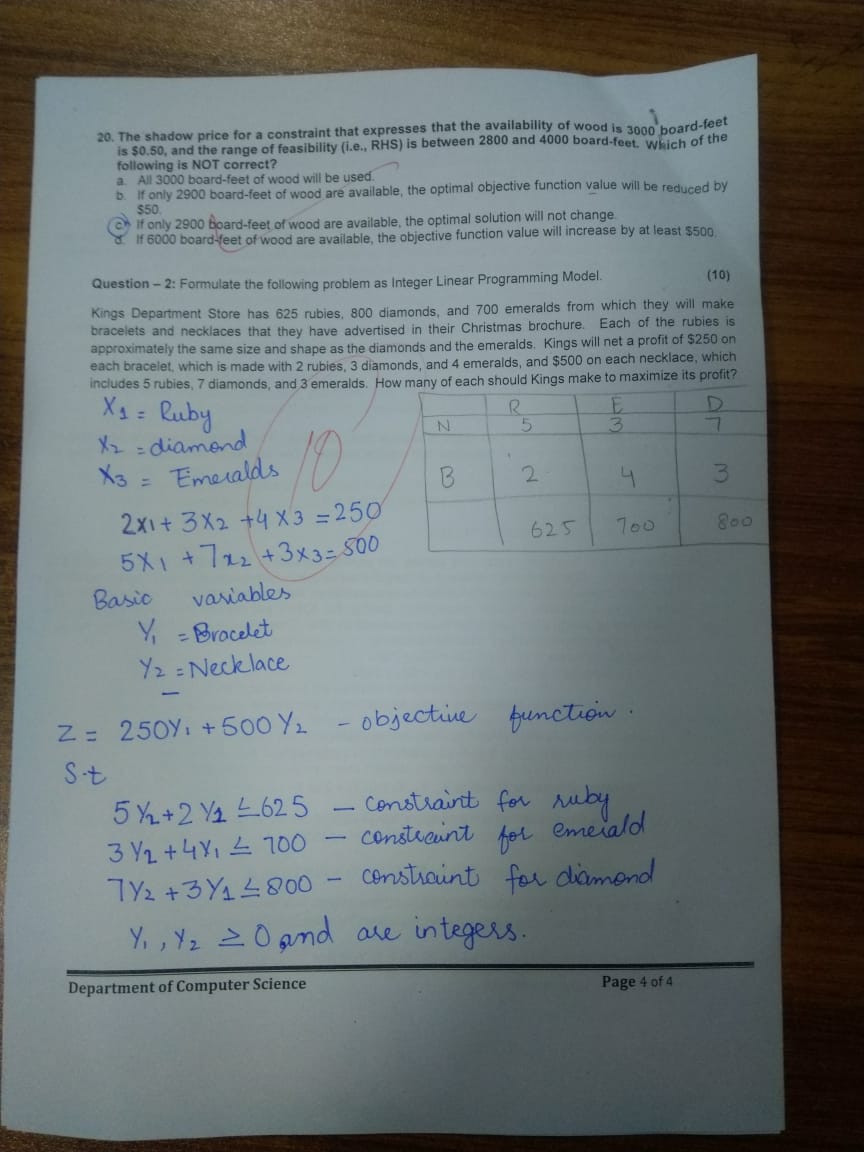 20. The shadow price for a constraint that expresses that the availability of wood is 3000 board-feet
is $0.50, and the range of feasibility (i.e., RHS) is between 2800 and 4000 board-feet. Which of the
following is NOT correct?
a. All 3000 board-feet of wood will be used.
b. If only 2900 board-feet of wood are available, the optimal objective function value will be reduced by
$50.
c. If only 2900 board-feet of wood are available, the optimal solution will not change.
d. If 6000 board-feet of wood are available, the objective function value will increase by at least $500.
Question – 2: Formulate the following problem as Integer Linear Programming Model. (10)
Kings Department Store has 625 rubies, 800 diamonds, and 700 emeralds from which they will make
bracelets and necklaces that they have advertised in their Christmas brochure. Each of the rubies is
approximately the same size and shape as the diamonds and the emeralds. Kings will net a profit of $250 on
each bracelet, which is made with 2 rubies, 3 diamonds, and 4 emeralds, and $500 on each necklace, which
includes 5 rubies, 7 diamonds, and 3 emeralds. How many of each should Kings make to maximize its profit?
X1 = Ruby
X2 = diamond
X3 = Emeralds
10
R E D
N 5 3 7
B 2 4 3
625 700 800
2x1 + 3X2 + 4X3 = 250
5X1 + 7x2 + 3x3 = 500
Basic variables
Y1 = Bracelet
Y2 = Necklace
Z = 250Y1 + 500Y2 - objective function.
S.t
5Y2 + 2Y1 ≤ 625 - constraint for ruby
3Y2 + 4Y1 ≤ 700 - constraint for emerald
7Y2 + 3Y1 ≤ 800 - constraint for diamond
Y1, Y2 ≥ 0 and are integers.
Department of Computer Science Page 4 of 4